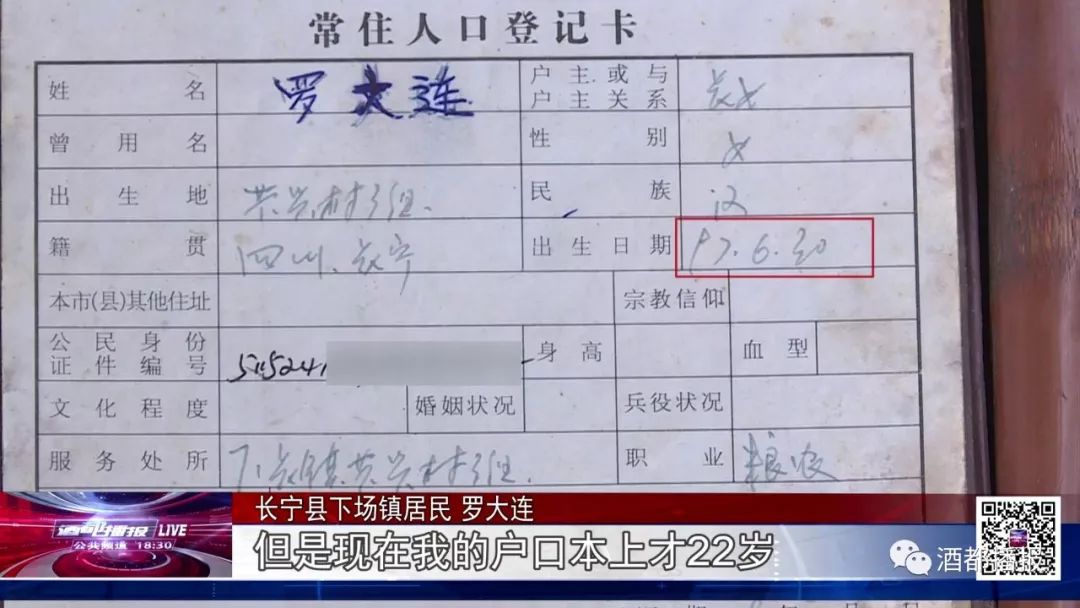 常住人口登记卡
姓名 罗大连 户主或与户主关系 长女
曾用名 性别 女
出生地 共兴村 组. 民族 汉
籍贯 四川长宁 出生日期 97.6.30
本市(县)其他住址 宗教信仰
公民身份证件编号 511524 身高 血型
文化程度 婚姻状况 兵役状况
服务处所 下长镇共兴村 组. 职业 粮农
酒都播报 LIVE
公共频道 18:30
长宁县下场镇居民 罗大连
但是现在我的户口本上才22岁
酒都播报